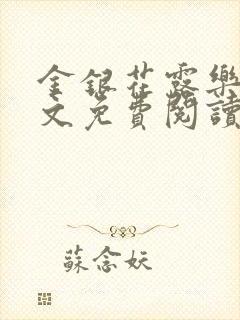 金銀花露樂
文免費閱讀
蘇念妖